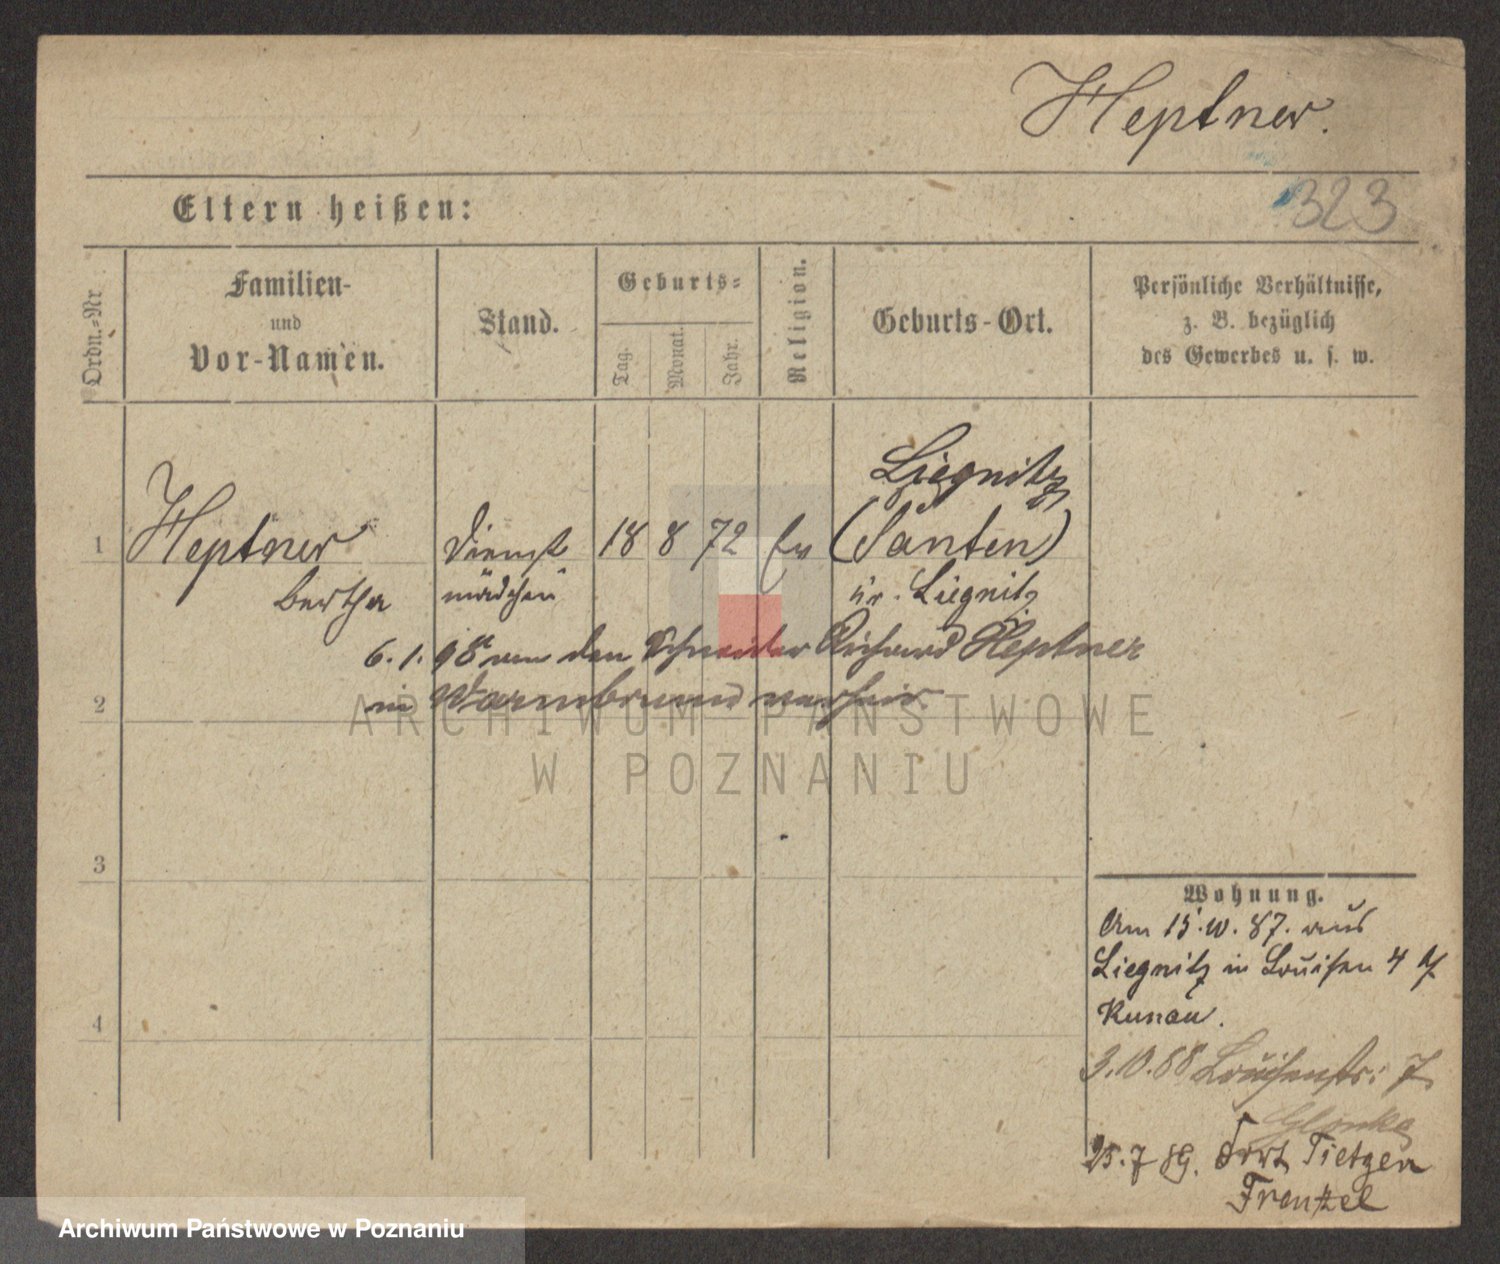 Heptner.
323
Eltern heißen:
Ordn.-Nr
Familien-
und
Vor-Namen.
Stand.
Geburts-
Tag.
Monat.
Jahr.
Religion.
Geburts-Ort.
Persönliche Verhältnisse,
z. B. bezüglich
des Gewerbes u. s. w.
Liegnitz
1 Heptner Dienst 18 8 72 Ev (Panten)
Bertha mädchen Liegnitz
6. 1. 98 an den Schneider Richard Heptner
2 in Warmbrunn verheir.
ARCHIWUM PAŃSTWOWE
W POZNANIU
3
Wohnung.
Am 15. 10. 87. aus
Liegnitz in Louisen 4
Kunau.
4
3. 10. 88 Louisenstr. 7
Glonke
25. 7 89. Fort Tietzen
Frentzel
Archiwum Państwowe w Poznaniu